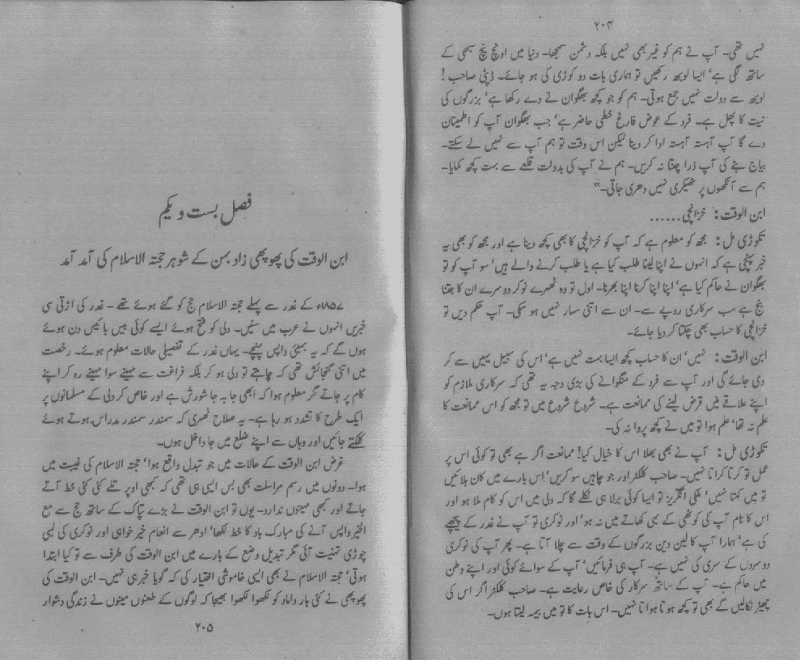 ۲۰۴
نہیں تھی۔ آپ نے ہم کو غیر بھی نہیں بلکہ دشمن سمجھا۔ دنیا میں اونچ نیچ سبھی کے
ساتھ لگی ہے' ایسا لوبھ رکھیں تو ہماری بات دو کوڑی کی ہو جائے۔ ڈپٹی صاحب!
لوبھ سے دولت نہیں جمع ہوتی۔ ہم کو جو کچھ بھگوان نے دے رکھا ہے' بزرگوں کی
نیت کا پھل ہے۔ فرد کے عوض فارغ خطی حاضر ہے' جب بھگوان آپ کو اطمینان
دے گا آپ آہستہ آہستہ ادا کر دینا لیکن اس وقت تو ہم آپ سے نہیں لے سکتے۔
بیاج بٹے کی آپ ذرا چنتا نہ کریں۔ ہم نے آپ کی بدولت قلعے سے بہت کچھ کمایا۔
ہم سے آنکھوں پر ٹھیکری نہیں دھری جاتی۔"
ابن الوقت: خزانچی......
ٹکوڑی مل: مجھ کو معلوم ہے کہ آپ کو خزانچی کا بھی کچھ دینا ہے اور مجھ کو بھی یہ
خبر پہنچی ہے کہ انہوں نے اپنا لینا طلب کیا ہے یا طلب کرنے والے ہیں' سو آپ کو تو
بھگوان نے حاکم کیا ہے' اپنا اپنا کرنا اپنا بھرنا۔ اول تو وہ ٹھہرے نوکر دوسرے ان کا جتنا
بنج ہے سب سرکاری روپے سے۔ ان سے اتنی سمار نہیں ہو سکی۔ آپ حکم دیں تو
خزانچی کا حساب بھی چکتا کر دیا جائے۔
ابن الوقت: نہیں' ان کا حساب کچھ ایسا بہت نہیں ہے' اس کی سبیل یہیں سے کر
دی جائے گی اور آپ سے فرد کے منگوانے کی بڑی وجہ یہ تھی کہ سرکاری ملازم کو
اپنے علاقے میں قرض لینے کی ممانعت ہے۔ شروع شروع میں تو مجھ کو اس ممانعت کا
علم نہ تھا' علم ہوا تو میں نے کچھ پروا نہ کی۔
ٹکوڑی مل: آپ نے بھی بھلا اس کا خیال کیا! ممانعت اگر ہے بھی تو کوئی اس پر
عمل تو کرتا کراتا نہیں۔ صاحب کلکٹر اور جو چاہیں سو کریں' اس بارے میں کان ہلائیں
تو میں کہتا نہیں' ملکی انگریز تو ایسا کوئی برلا ہی نکلے گا کہ دلی میں اس کو کام ملا ہو اور
اس کا نام آپ کی کوٹھی کے بہی کھاتے میں نہ ہو' اور نوکری تو آپ نے غدر کے پیچھے
کی ہے' ہمارا آپ کا لین دین بزرگوں کے وقت سے چلا آتا ہے۔ پھر آپ کی نوکری
دوسروں کے سری کی نہیں ہے۔ آپ ہی فرمائیں' آپ کے سوائے کوئی اور اپنے وطن
میں حاکم ہے۔ آپ کے ساتھ سرکار کی خاص رعایت ہے۔ صاحب کلکٹر اگر اس کی
چھیڑ نکالیں گے بھی تو کچھ ہوتا ہواتا نہیں۔ اس بات کا تو میں بیمہ لیتا ہوں۔
فصل بست و یکم
ابن الوقت کی پھوپھی زاد بہن کے شوہر حجتہ الاسلام کی آمد آمد
۱۸۵۷ء کے غدر سے پہلے حجتہ الاسلام حج کو گئے ہوئے تھے۔ غدر کی اڑتی سی
خبریں انہوں نے عرب میں سنیں۔ دلی کو فتح ہوئے ایسے کوئی بیس بائیس دن ہوئے
ہوں گے کہ یہ بمبئی واپس پہنچے۔ یہاں غدر کے تفصیلی حالات معلوم ہوئے۔ رخصت
میں اتنی گنجائش تھی کہ چاہتے تو دلی ہو کر بلکہ فراغت سے مہینے سوا مہینے رہ کر اپنے
کام پر جاتے مگر معلوم ہوا کہ ابھی جا بہ جا شورش ہے اور خاص کر دلی کے مسلمانوں پر
ایک طرح کا تشدد ہو رہا ہے۔ یہ صلاح ٹھہری کہ سمندر سمندر مدراس ہوتے ہوئے
کلکتے جائیں اور وہاں سے اپنے ضلع میں جا داخل ہوں۔
غرض ابن الوقت کے حالات میں جو تبدل واقع ہوا' حجتہ الاسلام کی غیبت میں
ہوا۔ دونوں میں رسم مراسلت بھی بس ایسی ہی تھی کہ کبھی اوپر تلے کئی کئی خط آتے
جاتے اور کبھی مہینوں ندارد۔ یوں تو ابن الوقت نے بڑے تپاک کے ساتھ حج سے مع
الخیر واپس آنے کی مبارک باد کا خط لکھا' ادھر سے انعام خیر خواہی اور نوکری کی لمبی
چوڑی تہنیت آئی مگر تبدیل وضع کے بارے میں ابن الوقت کی طرف سے تو کیا ابتدا
ہوتی' حجتہ الاسلام نے بھی ایسی خاموشی اختیار کی کہ گویا خبر ہی نہیں۔ ابن الوقت کی
پھوپھی نے کئی بار داماد کو لکھوا لکھوا بھیجا کہ لوگوں کے طعنوں مہینوں نے زندگی دشوار
۲۰۵